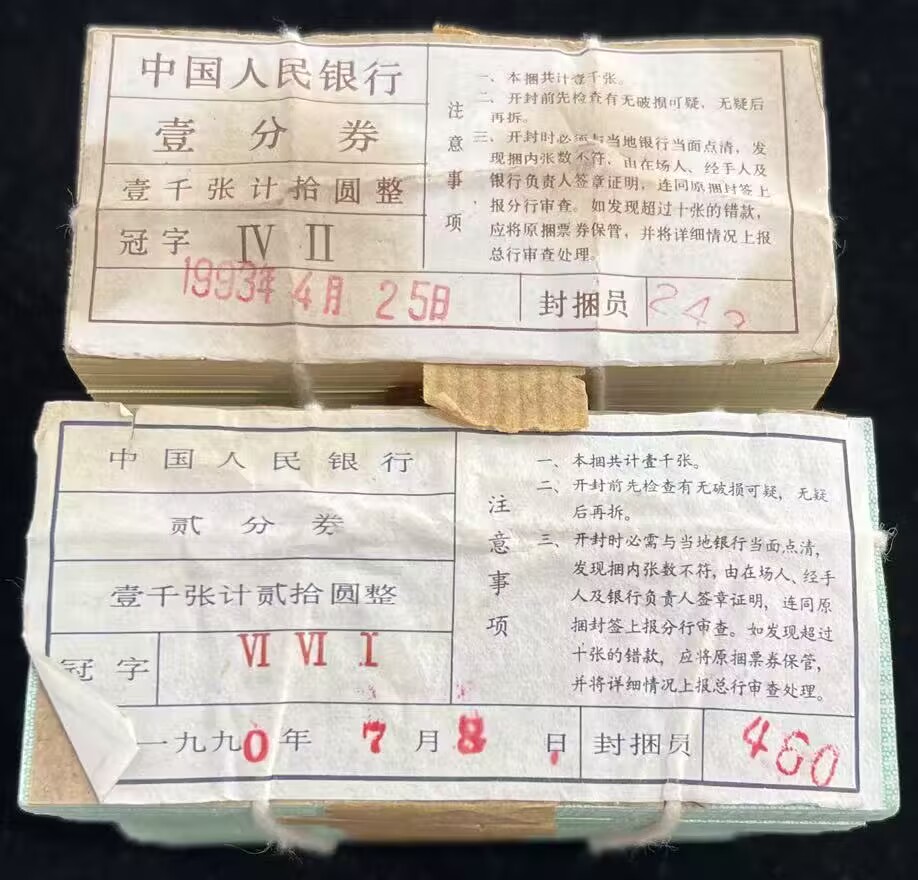 中国人民银行
壹分券
壹千张计拾圆整
冠字 Ⅳ Ⅱ
1993年 4月 25日
注意事项
一、本捆共计壹千张。
二、开封前先检查有无破损可疑，无疑后
再拆。
三、开封时必须与当地银行当面点清，发
现捆内张数不符，由在场人、经手人及
银行负责人签章证明，连同原捆封签上
报分行审查。如发现超过十张的错款，
应将原捆票券保管，并将详细情况上报
总行审查处理。
封捆员
中国人民银行
贰分券
壹千张计贰拾圆整
冠字 Ⅵ Ⅵ Ⅰ
一九九0年 7月 8日
注意事项
一、本捆共计壹千张。
二、开封前先检查有无破损可疑，无疑
后再拆。
三、开封时必需与当地银行当面点清，
发现捆内张数不符，由在场人、经手
人及银行负责人签章证明，连同原
捆封签上报分行审查。如发现超过
十张的错款，应将原捆票券保管，
并将详细情况上报总行审查处理。
封捆员 460